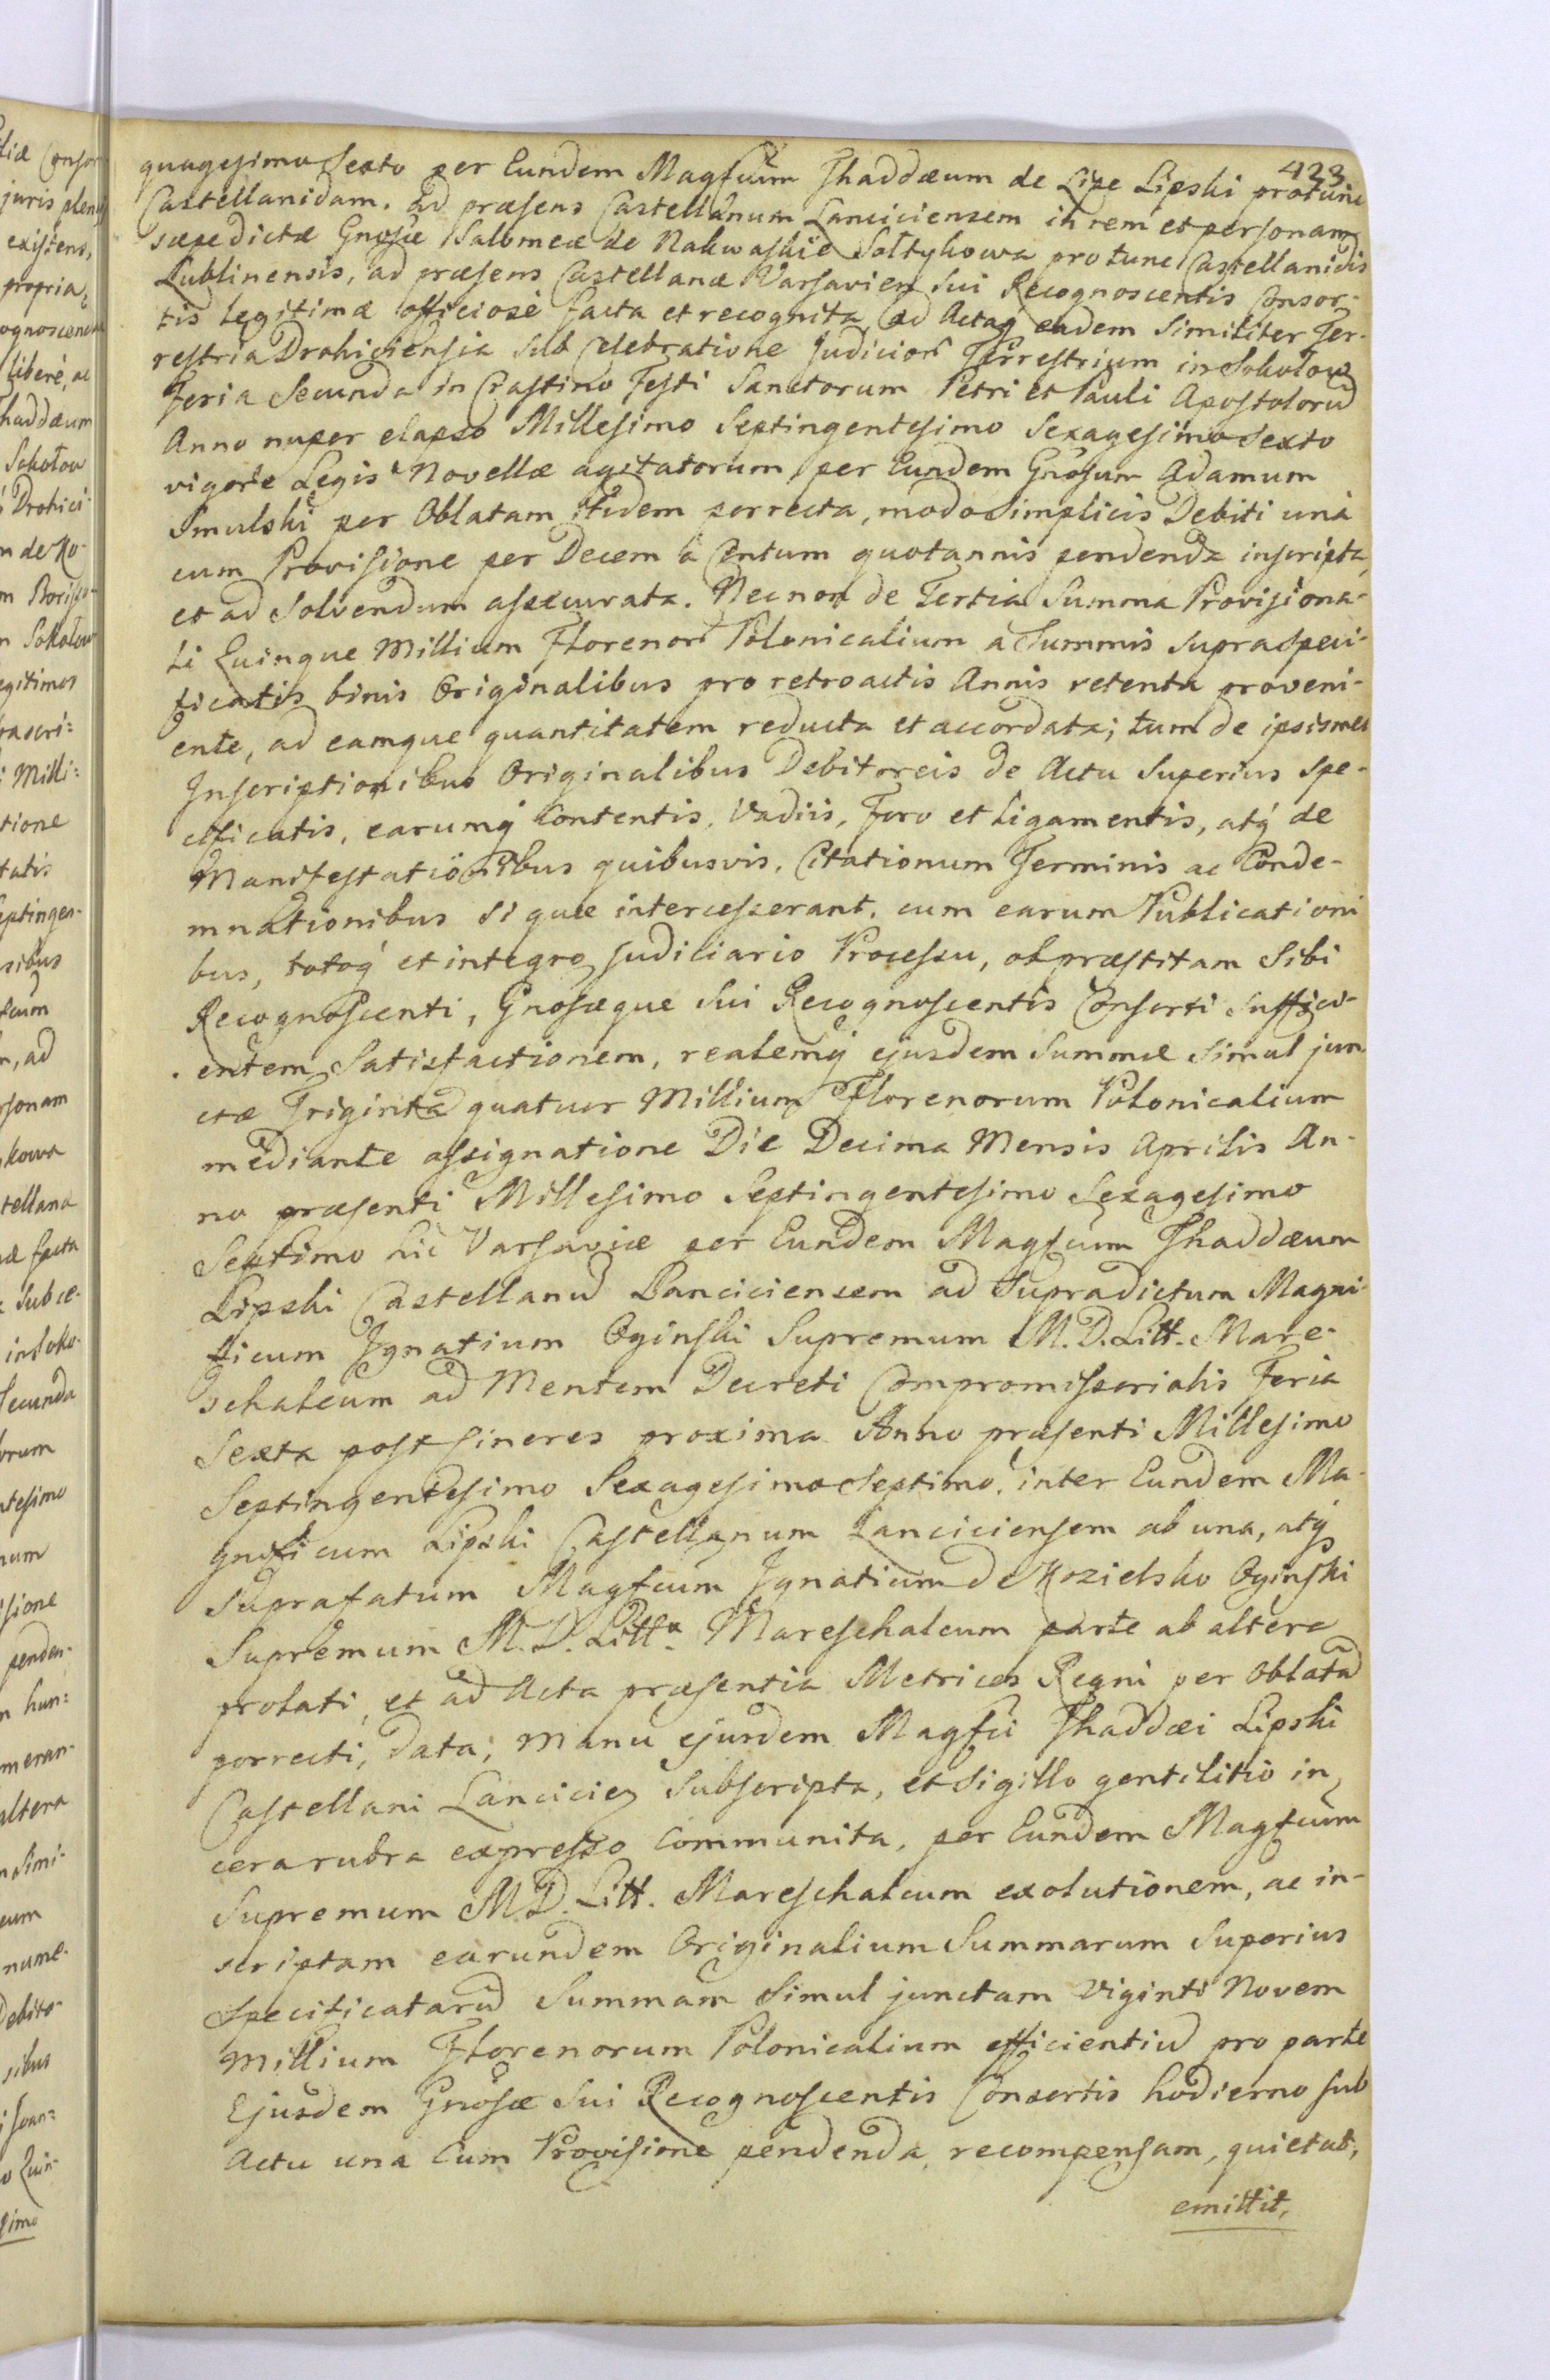 423
quagesimo Sexto per Eundem Magfcum Thaddæum de Lipe Lipski protunc
Castellanidam. ad præsens Castellanum Lanciciensem in rem et personam
sæpedictæ Gnosæ Salomeæ de Nakwaskie Sołtykowa protunc Castellanidis
Lublinensis, ad præsens Castellanæ Varsavien sui Recognoscentis Consor-
tis legitimæ officiosè facta et recognita, ad Actaq́ eadem similiter Ter-
restria Drohiciensia sub Celebratione Judicior Terrestrium in Sokołow
Feria Secunda in Crastino Festi Sanctorum Petri et Pauli Apostolorū
Anno nuper elapso Millesimo Septingentesimo Sexagesimo Sexto
vigore Legis Novellæ agitatorum per Eundem Gnosum Adamum
Smulski per Oblatam itidem porrecta, modo Simplicis Debiti unà
cum Provisione per Decem à Centum quotannis pendenda inscripta,
et ad solvendum assecurata. Necnon de Tertia Summa Provisiona-
li Quinque Millium Florenor Polonicalium à Summis supraspeci-
ficatis binis Originalibus pro retroactis Annis retenta proveni-
ente, ad eamque quantitatem reducta et accordata; tum de ipsismet
Inscriptionibus Originalibus Debitoreis de Actu Superius spe-
cificatis, earumq́ Contentis, Vadiis, Foro et Ligamentis, atq́ de
Manifestationibus quibusvis, Citationum Terminis ac Conde-
mnationibus si quæ intercesserant, cum earum Publicationi
bus, totoq́ et integro Judiciario Processu, ob præstitam Sibi
Recognoscenti, Gnosæque Sui Recognoscentis Consorti suffici-
entem Satisfactionem, realemq́ ejusdem Summæ simul jun
ctæ Triginta quatuor Millium Florenorum Polonicalium
mediante assignatione Die Decima Mensis Aprilis An-
no præsenti Millesimo Septingentesimo Sexagesimo
Septimo hic Varsaviæ per Eundem Magfcum Thaddæum
Lipski Castellanū Lanciciensem ad Supradictum Magni-
ficum Ignatium Oginski Supremum M. D. Litt. Mare-
schalcum ad Mentem Decreti Compromissorialis Feria
Sexta post Cineres proxima Anno præsenti Millesimo
Septingentesimo Sexagesimo Septimo, inter Eundem Ma-
gnificum Lipski Castellanum Lanciciensem ab una, atq́
Suprafatum Magfcum Ignatium de Kozielsko Oginski
Supremum M. D. Litt. Mareschalcum parte ab altera
prolati, et ad Acta præsentia Metrices Regni per Oblatā
porrecti, data, Manu ejusdem Magfci Thaddæi Lipski
Castellani Lancicien Subscripta, et Sigillo gentilitio in
cera rubra expresso Communita, per Eundem Magfcum
Supremum M. D. Litt. Mareschalcum exolutionem, ac in-
scriptam earundem Originalium Summarum Superius
Specificatarū Summam simul junctam Viginti Novem
Millium Florenorum Polonicalium efficientiū pro parte
Ejusdem Gnosæ Sui Recognoscentis Consortis hodierno sub
Actu una Cum Provisione pendenda, recompensam, quietat,
emittit,